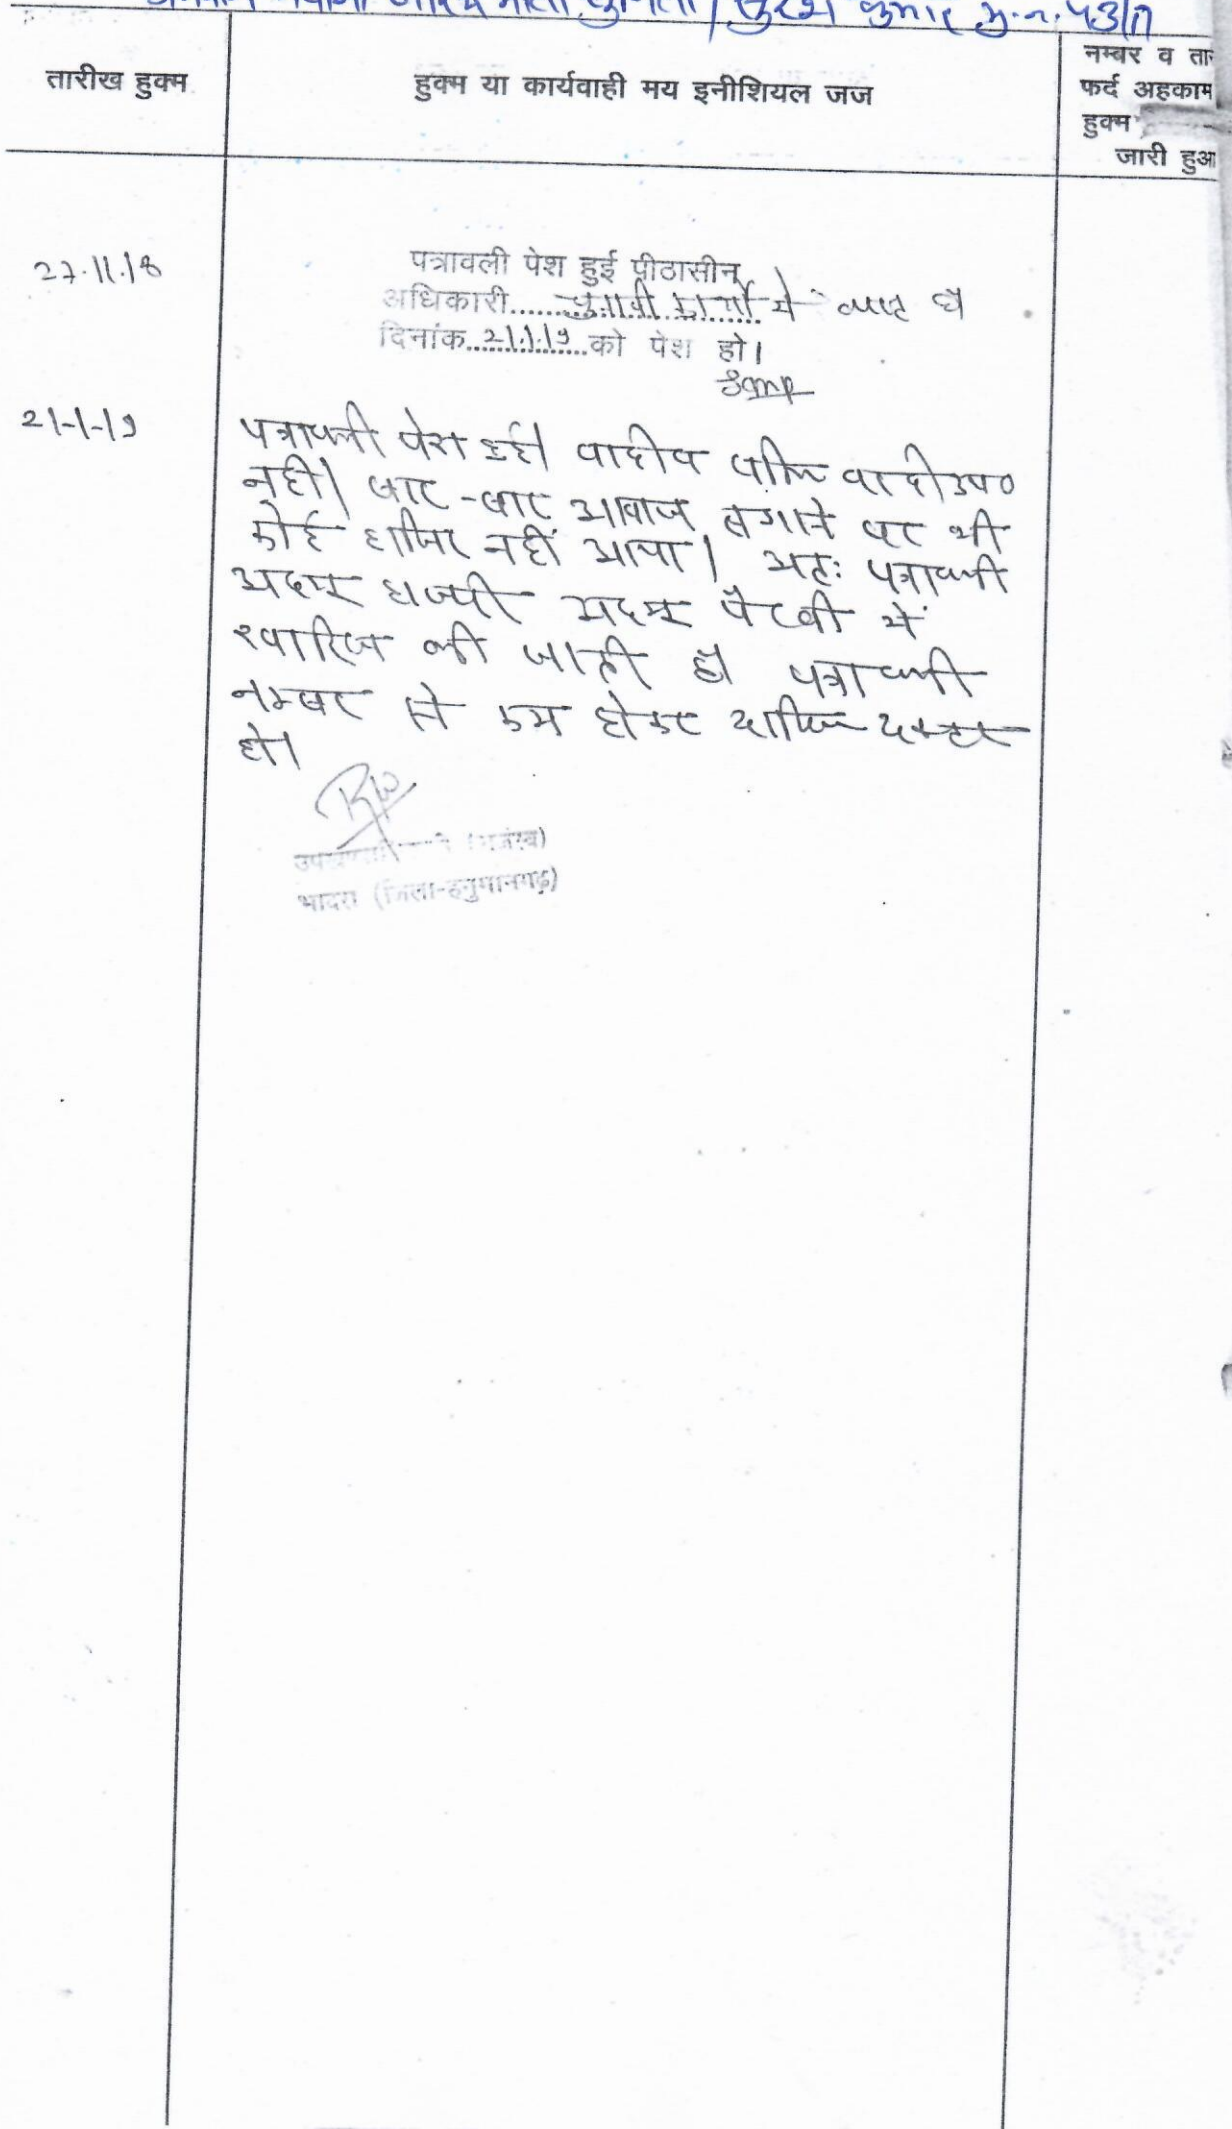 सुरेश कुमार मु.न. 43/17
तारीख हुक्म
हुक्म या कार्यवाही मय इनीशियल जज
नम्बर व ता
फर्द अहकाम
हुक्म
जारी हुआ
27.11.18
पत्रावली पेश हुई पीठासीन
अधिकारी......चुनावी कार्यो में है
दिनांक..21.1.19..को पेश हो।
21-1-19
पत्रावली पेश हुई। वादी व प्रति वादी उप०
नहीं। बार-बार आवाज लगाने पर भी
कोई हाजिर नहीं आया। अतः पत्रावली
अदम हाजरी अदम पैरवी में
खारिज की जाती है। पत्रावली
नम्बर से कम होकर दाखिल दफ्तर
हो।
भादरा (जिला-हनुमानगढ़)